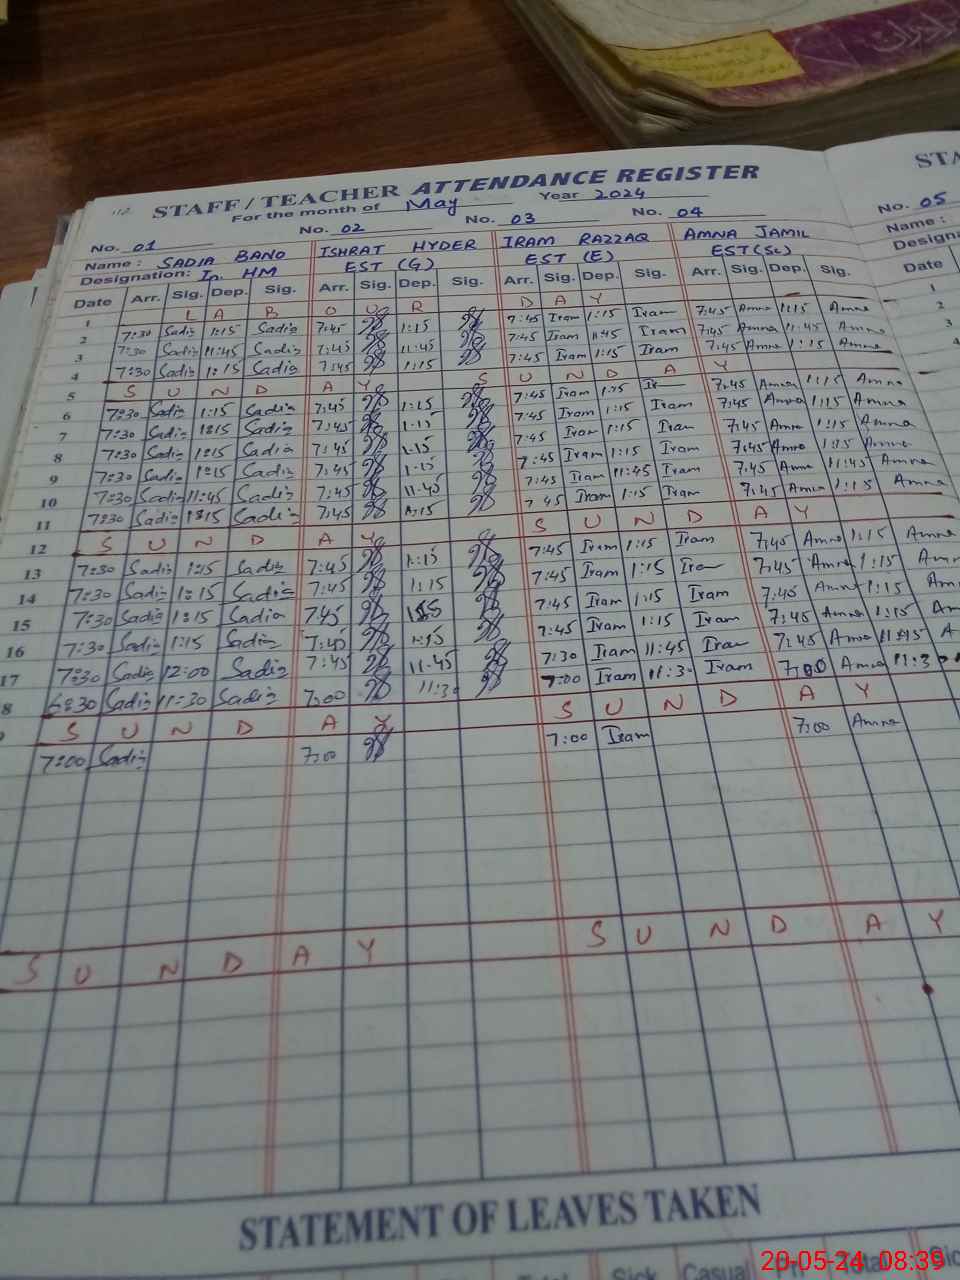 STAFF / TEACHER ATTENDANCE REGISTER STA
For the month of May Year 2024
No. 01 No. 02 No. 03 No. 04 No. 05
Name : SADIA BANO ISHRAT HYDER IRAM RAZZAQ AMNA JAMIL Name :
Designation: In HM EST (G) EST (E) EST (Sc) Designa
Date Arr. Sig. Dep. Sig. Arr. Sig. Dep. Sig. Arr. Sig. Dep. Sig. Arr. Sig. Dep. Sig. Date
1 L A B O U R D A Y 1
2 7:30 Sadia 1:15 Sadia 7:45 1:15 7:45 Iram 1:15 Iram 7:45 Amna 1:15 Amna 2
3 7:30 Sadia 11:45 Sadia 7:45 11:45 7:45 Iram 11:45 Iram 7:45 Amna 11:45 Amna 3
4 7:30 Sadia 1:15 Sadia 7:45 1:15 7:45 Iram 1:15 Iram 7:45 Amna 1:15 Amna 4
5 S U N D A Y S U N D A Y
6 7:30 Sadia 1:15 Sadia 7:45 1:15 7:45 Iram 1:15 7:45 Amna 1:15 Amna
7 7:30 Sadia 1:15 Sadia 7:45 1:15 7:45 Iram 1:15 Iram 7:45 Amna 1:15 Amna
8 7:30 Sadia 1:15 Sadia 7:45 1:15 7:45 Iram 1:15 Iram 7:45 Amna 1:15 Amna
9 7:30 Sadia 1:15 Sadia 7:45 1:15 7:45 Iram 1:15 Iram 7:45 Amna 1:15 Amna
10 7:30 Sadia 11:45 Sadia 7:45 11:45 7:45 Iram 11:45 Iram 7:45 Amna 11:45 Amna
11 7:30 Sadia 1:15 Sadia 7:45 1:15 7:45 Iram 1:15 Iram 7:45 Amna 1:15 Amna
12 S U N D A Y S U N D A Y
13 7:30 Sadia 1:15 Sadia 7:45 1:15 7:45 Iram 1:15 Iram 7:45 Amna 1:15 Amna
14 7:30 Sadia 1:15 Sadia 7:45 1:15 7:45 Iram 1:15 Iram 7:45 Amna 1:15 Amn
15 7:30 Sadia 1:15 Sadia 7:45 7:45 Iram 1:15 Iram 7:45 Amna 1:15 Am
16 7:30 Sadia 1:15 Sadia 7:45 1:15 7:45 Iram 1:15 Iram 7:45 Amna 1:15 Am
17 7:30 Sadia 12:00 Sadia 7:45 11:45 7:30 Iram 11:45 Iram 7:45 Amna A
8 6:30 Sadia 11:30 Sadia 7:00 11:30 7:00 Iram 11:30 Iram 7:00 Amna 11:30
S U N D A Y S U N D A Y
7:00 Sadia 7:00 7:00 Iram 7:00 Amna
S U N D A Y S U N D A Y
STATEMENT OF LEAVES TAKEN
Total Sick Casual Pri Total Sic
20-05-24 08:39